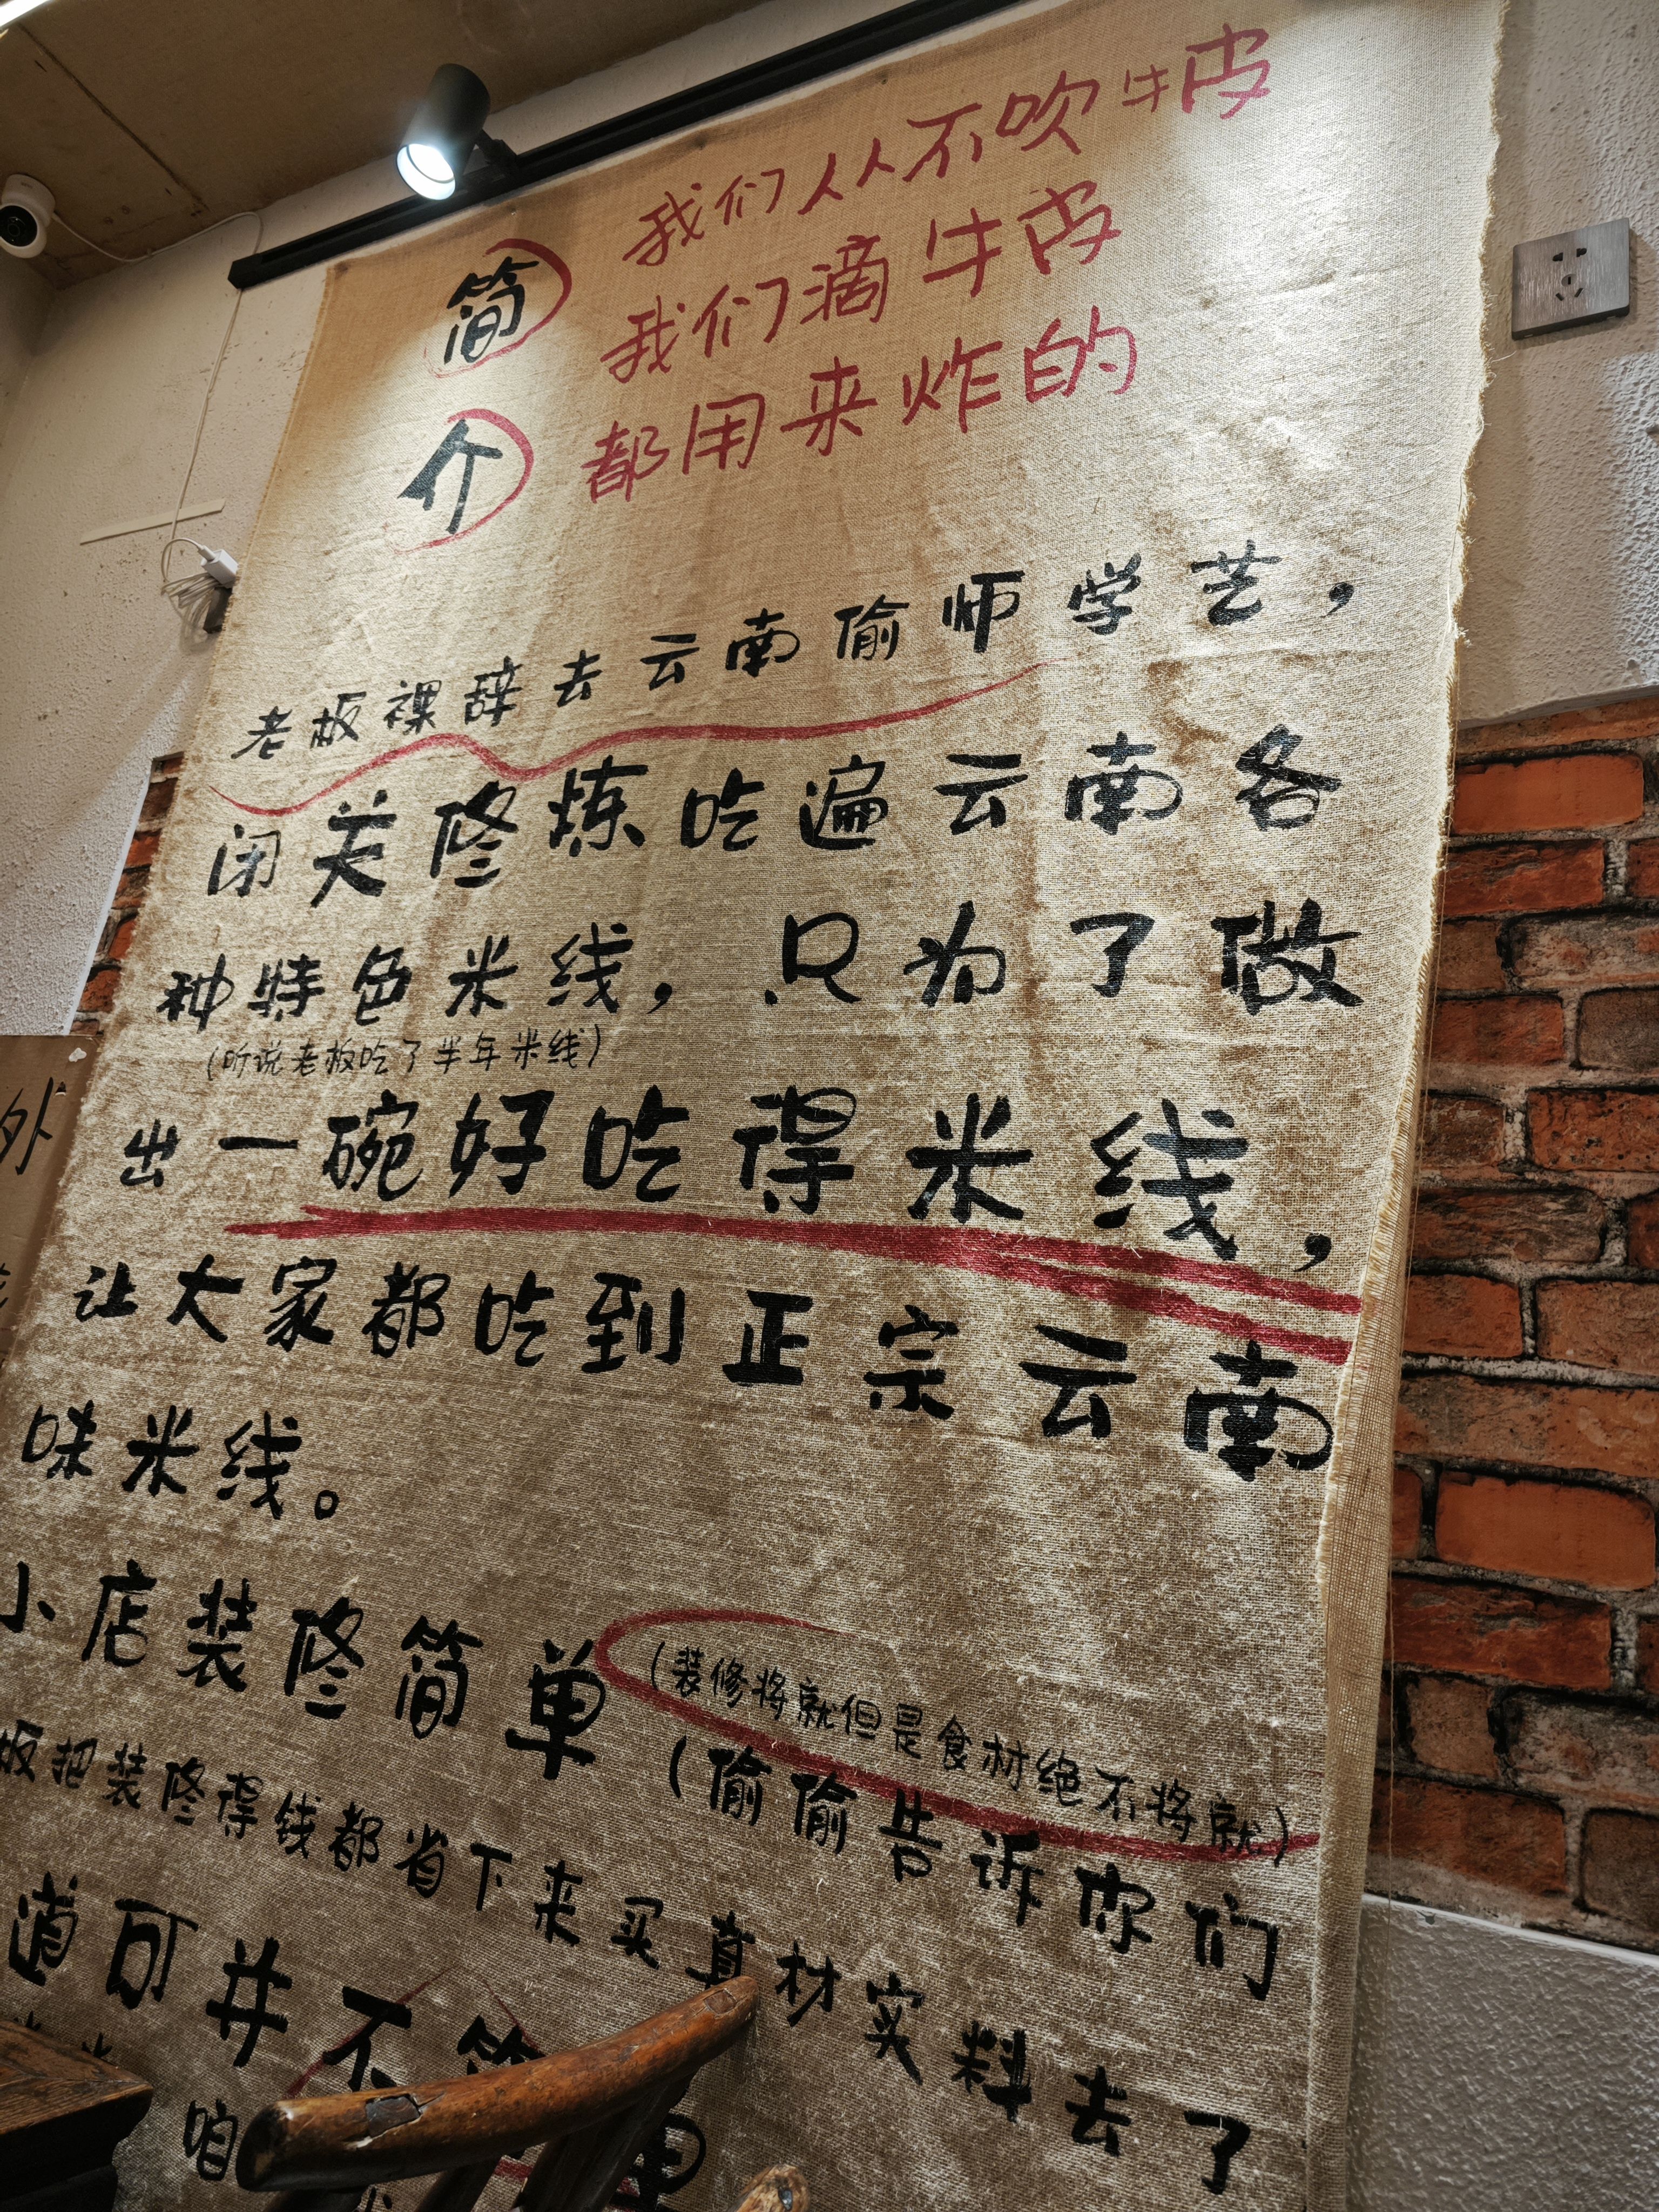 简介
我们从不吹牛皮
我们滴牛皮
都用来炸的
老板裸辞去云南偷师学艺，
闭关修炼吃遍云南各
种特色米线，只为了做
(听说老板吃了半年米线)
出一碗好吃得米线，
让大家都吃到正宗云南
味米线。
小店装修简单
(装修将就但是食材绝不将就)
(偷偷告诉你们
板把装修得钱都省下来买真材实料去了
道可并不简单
咱
外